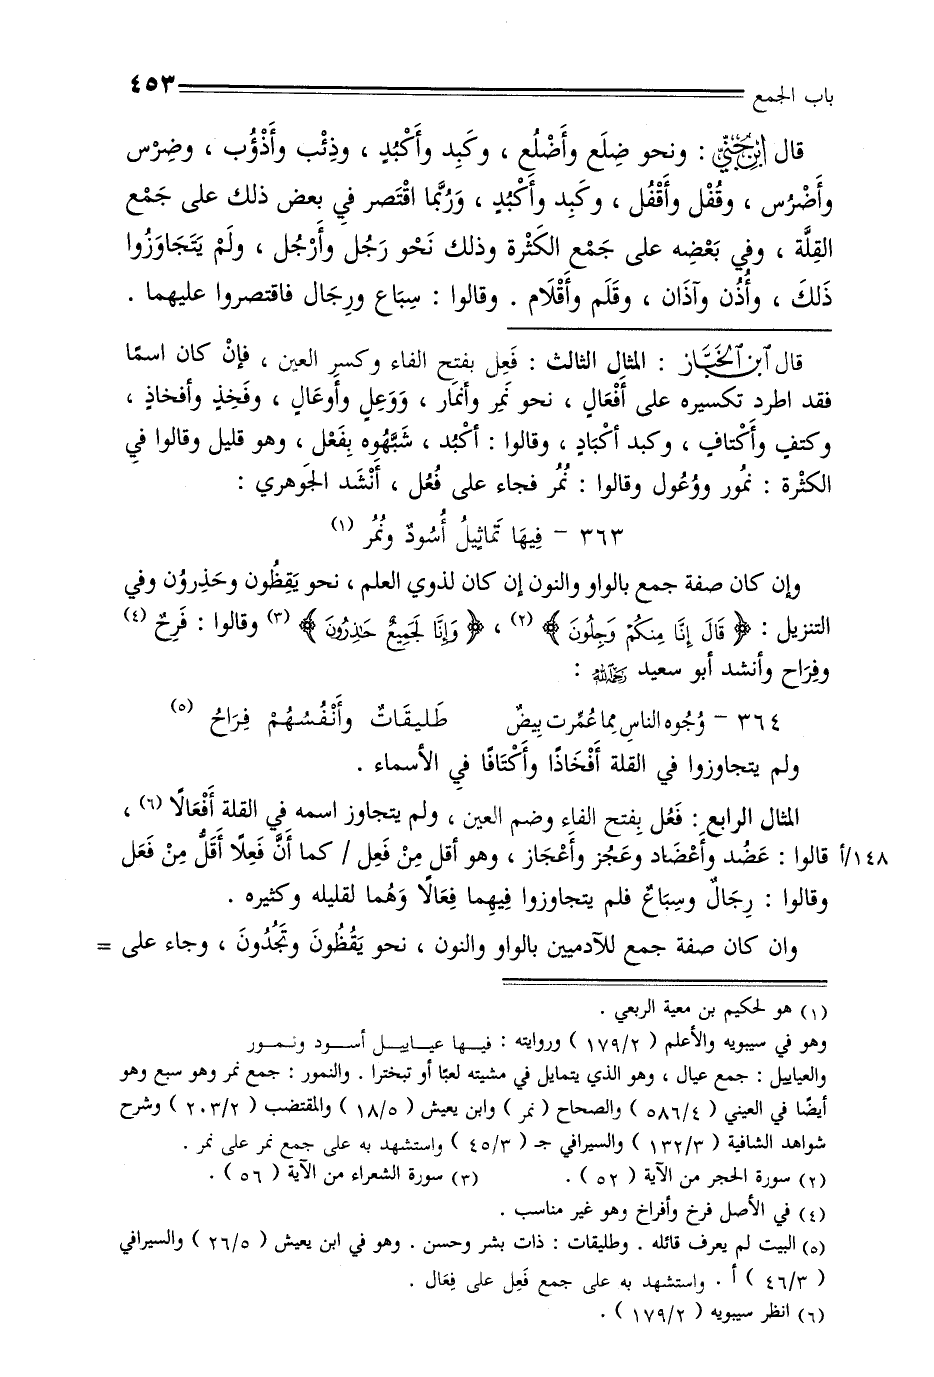 باب الجمع ٤٥٣
قال ابن جني : ونحو ضِلَع وأَضْلُع ، وكَبِد وأَكْبُدٍ ، وذِئْب وأَذْؤُب ، وضِرْس
وأَضْرُس ، وقُفْل وأَقْفُل ، وكَبِد وأَكْبُدٍ ، وَرُبَّما اقْتَصر في بعض ذلك على جَمْع
القِلَّة ، وفي بَعْضِه على جَمْع الكَثْرة وذلك نَحْو رَجُل وأَرْجُل ، ولَمْ يَتَجَاوَزُوا
ذَلكَ ، وأُذُن وآذَان ، وقَلَم وأَقْلَام . وقالوا : سِبَاع ورِجَال فاقتصروا عليهما .
قال ابن الخباز : المثال الثالث : فَعِل بفتح الفاء وكسر العين ، فإنْ كان اسمًا
فقد اطرد تكسيره على أَفْعَالٍ ، نحو نَمِر وأنمَار ، وَوَعِلٍ وأَوعَالٍ ، وفَخِذٍ وأفخاذٍ ،
وكتفٍ وأَكْتافٍ ، وكبد أكْبَادٍ ، وقالوا : أكْبُد ، شَبَّهُوه بِفَعْل ، وهو قليل وقالوا في
الكثْرة : نمُور ووُعُول وقالوا : نُمُر فجاء على فُعُل ، أنْشَد الجَوهري :
٣٦٣ – فِيهَا تَمَاثِيلُ أُسُودٌ ونُمُر (١)
وإن كان صفة جمع بالواو والنون إن كان لذوي العلم ، نحو يَقِظُون وحَذِرؤُن وفي
التنزيل : ﴿ قَالَ إِنَّا مِنكُمْ وَجِلُونَ ﴾ (٢) ، ﴿ وَإِنَّا لَجَمِيعٌ حَٰذِرُونَ ﴾ (٣) وقالوا : فَرِحٌ (٤)
وفِرَاح وأنشد أبو سعيد رحمه الله :
٣٦٤ – وُجُوه الناسِ مما عُمِّرت بِيضٌ طَلـيقَـاتٌ وأَنْفُـسُهُـمْ فِرَاحُ (٥)
ولم يتجاوزوا في القلة أَفْخَاذًا وأَكْتَافًا فِي الأسماء .
المثال الرابع : فَعُل بفتح الفاء وضم العين ، ولم يتجاوز اسمه في القلة أَفْعَالًا (٦) ،
١٤٨/أ قالوا : عَضُد وأَعْضَاد وعَجُز وأَعْجَاز ، وهو أقل مِنْ فَعِل / كما أَنَّ فَعِلًا أَقَلُّ مِنْ فَعَل
وقالوا : رِجَالٌ وسِبَاعٌ فلم يتجاوزوا فِيهِما فِعَالًا وَهُما لقليله وكثيره .
وان كان صفة جمع للآدميين بالواو والنون ، نحو يَقُظُونَ ونَجُدُونَ ، وجاء على =
(١) هو لحكيم بن معية الربعي .
وهو في سيبويه والأعلم ( ١٧٩/٢ ) وروايته : فيـها عيـاييـل أسـود ونـمور
والعياييل : جمع عيال ، وهو الذي يتمايل في مشيته لعبًا أو تبخترا . والنمور : جمع نمر وهو سبع وهو
أيضًا في العيني ( ٥٨٦/٤ ) والصحاح ( نمر ) وابن يعيش ( ١٨/٥ ) والمقتضب ( ٢٠٣/٢ ) وشرح
شواهد الشافية ( ١٣٢/٣ ) والسيرافي جـ ( ٤٥/٣ ) واستشهد به على جمع نمر على نمر .
(٢) سورة الحجر من الآية ( ٥٢ ) . (٣) سورة الشعراء من الآية ( ٥٦ ) .
(٤) في الأصل فرخ وأفراخ وهو غير مناسب .
(٥) البيت لم يعرف قائله . وطليقات : ذات بشر وحسن . وهو في ابن يعيش ( ٢٦/٥ ) والسيرافي
( ٤٦/٣ ) أ . واستشهد به على جمع فَعِل على فِعَال .
(٦) انظر سيبويه ( ١٧٩/٢ ) .